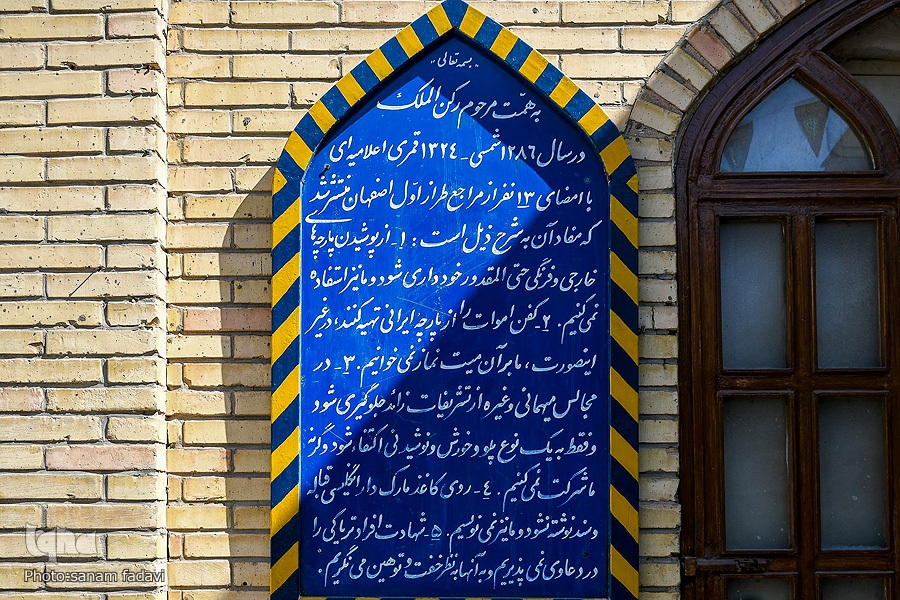 "بسمه تعالی"
به همّت مرحوم رکن الملک
در سال ۱۲۸۶ شمسی - ۱۳۲۴ قمری اعلامیه‌ای
با امضای ۱۳ نفر از مراجع طراز اوّل اصفهان منتشر شد
که مفاد آن به شرح ذیل است : ۱ - از پوشیدن پارچه‌ها
خارجی و فرنگی حتی المقدور خودداری شود و ما نیز استفاده
نمی کنیم . ۲ - کفن اموات را از پارچه ایرانی تهیه کنند ، در غیر
اینصورت ، ما بر آن میت نماز نمی خوانیم . ۳ - در
مجالس میهمانی و غیره از تشریفات زائد جلوگیری شود
و فقط به یک نوع پلو و خورش و نوشیدنی اکتفاء شود و گرنه
ما شرکت نمی کنیم . ٤ - روی کاغذ مارک دار انگلیسی قباله
و سند نوشته نشود و ما نیز نمی نویسیم . ۵ - شهادت افراد تریاکی را
در دعاوی نمی پذیریم و به آنها به نظر خفت و توهین می نگریم .
iqna
Photo:sanam fadavi